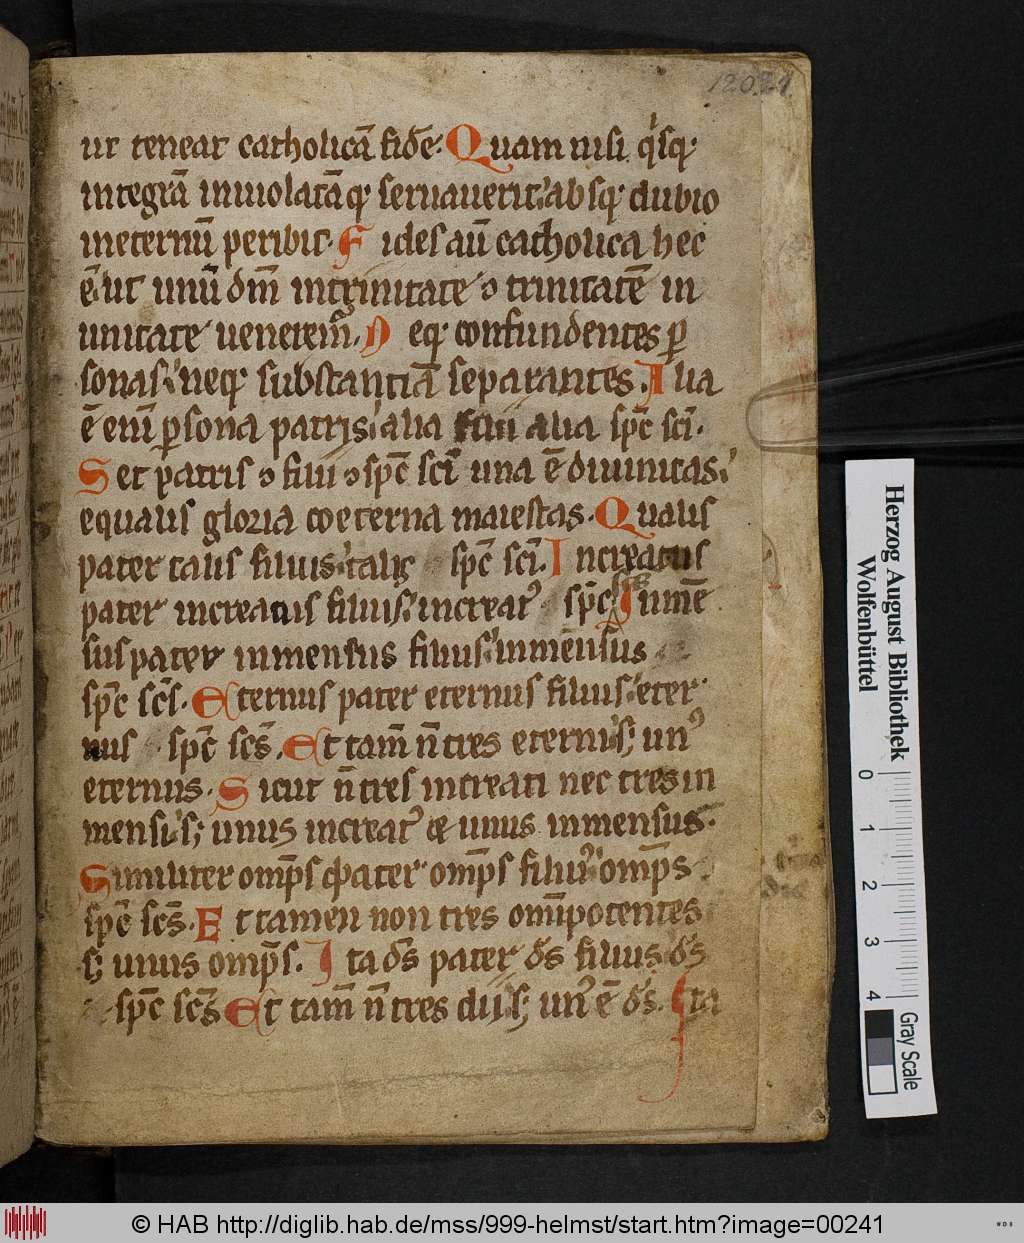 120 121
ut teneat catholicā fidē. Quam nisi q'sq;
integrā inviolatāq; servaverit: absq; dubio
ineternū peribit. Fides aū catholica hec
ē ut unū dm̄ intrinitate ⁊ trinitatē in
unitate veneremr̄. Neq; confundentes ꝑ
sonas: neq; substantiā separantes. Alia
ē enī ꝑsona patris: alia filii alia spc̄ scī.
Set patris ⁊ filii ⁊ spc̄ scī una ē divinitas:
equalis gloria coeterna maiestas. Qualis
pater talis filius: talis spc̄ scī. Increatus
pater increatus filius: increat᾽ spc̄ Inmē
sus pater inmensus filius: inmēnsus
spc̄ scs̄. Eternus pater eternus filius: eter
nus spc̄ scs̄. Et tam̄ n̄ tres eterni: s; un᾽
eternus. Sicut n̄ tres increati nec tres in
mensi: s; unus increat᾽ et unus inmensus.
Similiter omp̄s pater omp̄s filius: omp̄s
spc̄ scs̄. Et tamen non tres omīpotentes
s; unus omp̄s. Ita ds̄ pater ds̄ filius ds̄
spc̄ scs̄ Et tam̄ n̄ tres dii: s; un᾽ ē ds̄. Ita
Herzog August Bibliothek
Wolfenbüttel
0 1 2 3 4
Gray Scale
© HAB http://diglib.hab.de/mss/999-helmst/start.htm?image=00241